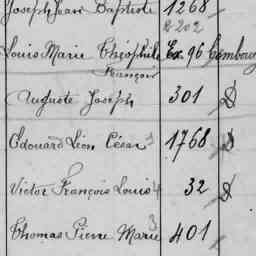 Joseph Jean Baptiste 1268
R 202
Louis Marie Théophile Ex. 96 Combourg
François
Auguste Joseph 301 D
Edouard Léon César 1768 D
Victor François Louis 4 32 D
Thomas Pierre Marie 3 401